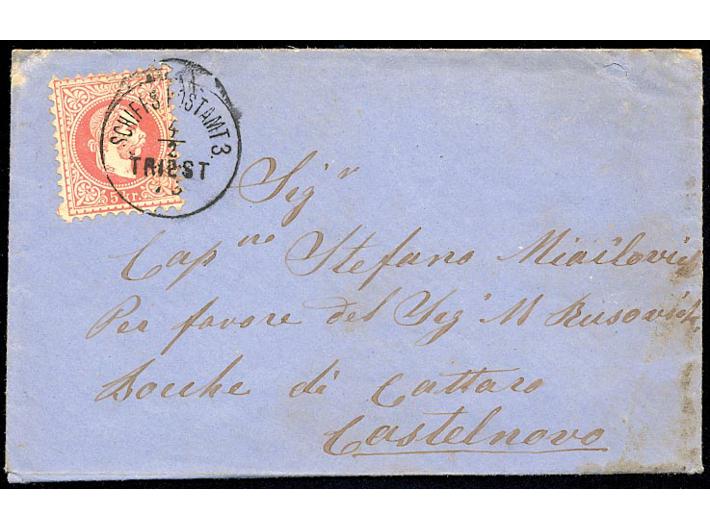 SCHIFFS POSTAMT 3.
4
2
TRIEST
5 kr.
Sig^r
Cap^no Stefano Miailovich
Per favore del Sig^r M Rusovich
Bocche di Cattaro
Castelnovo